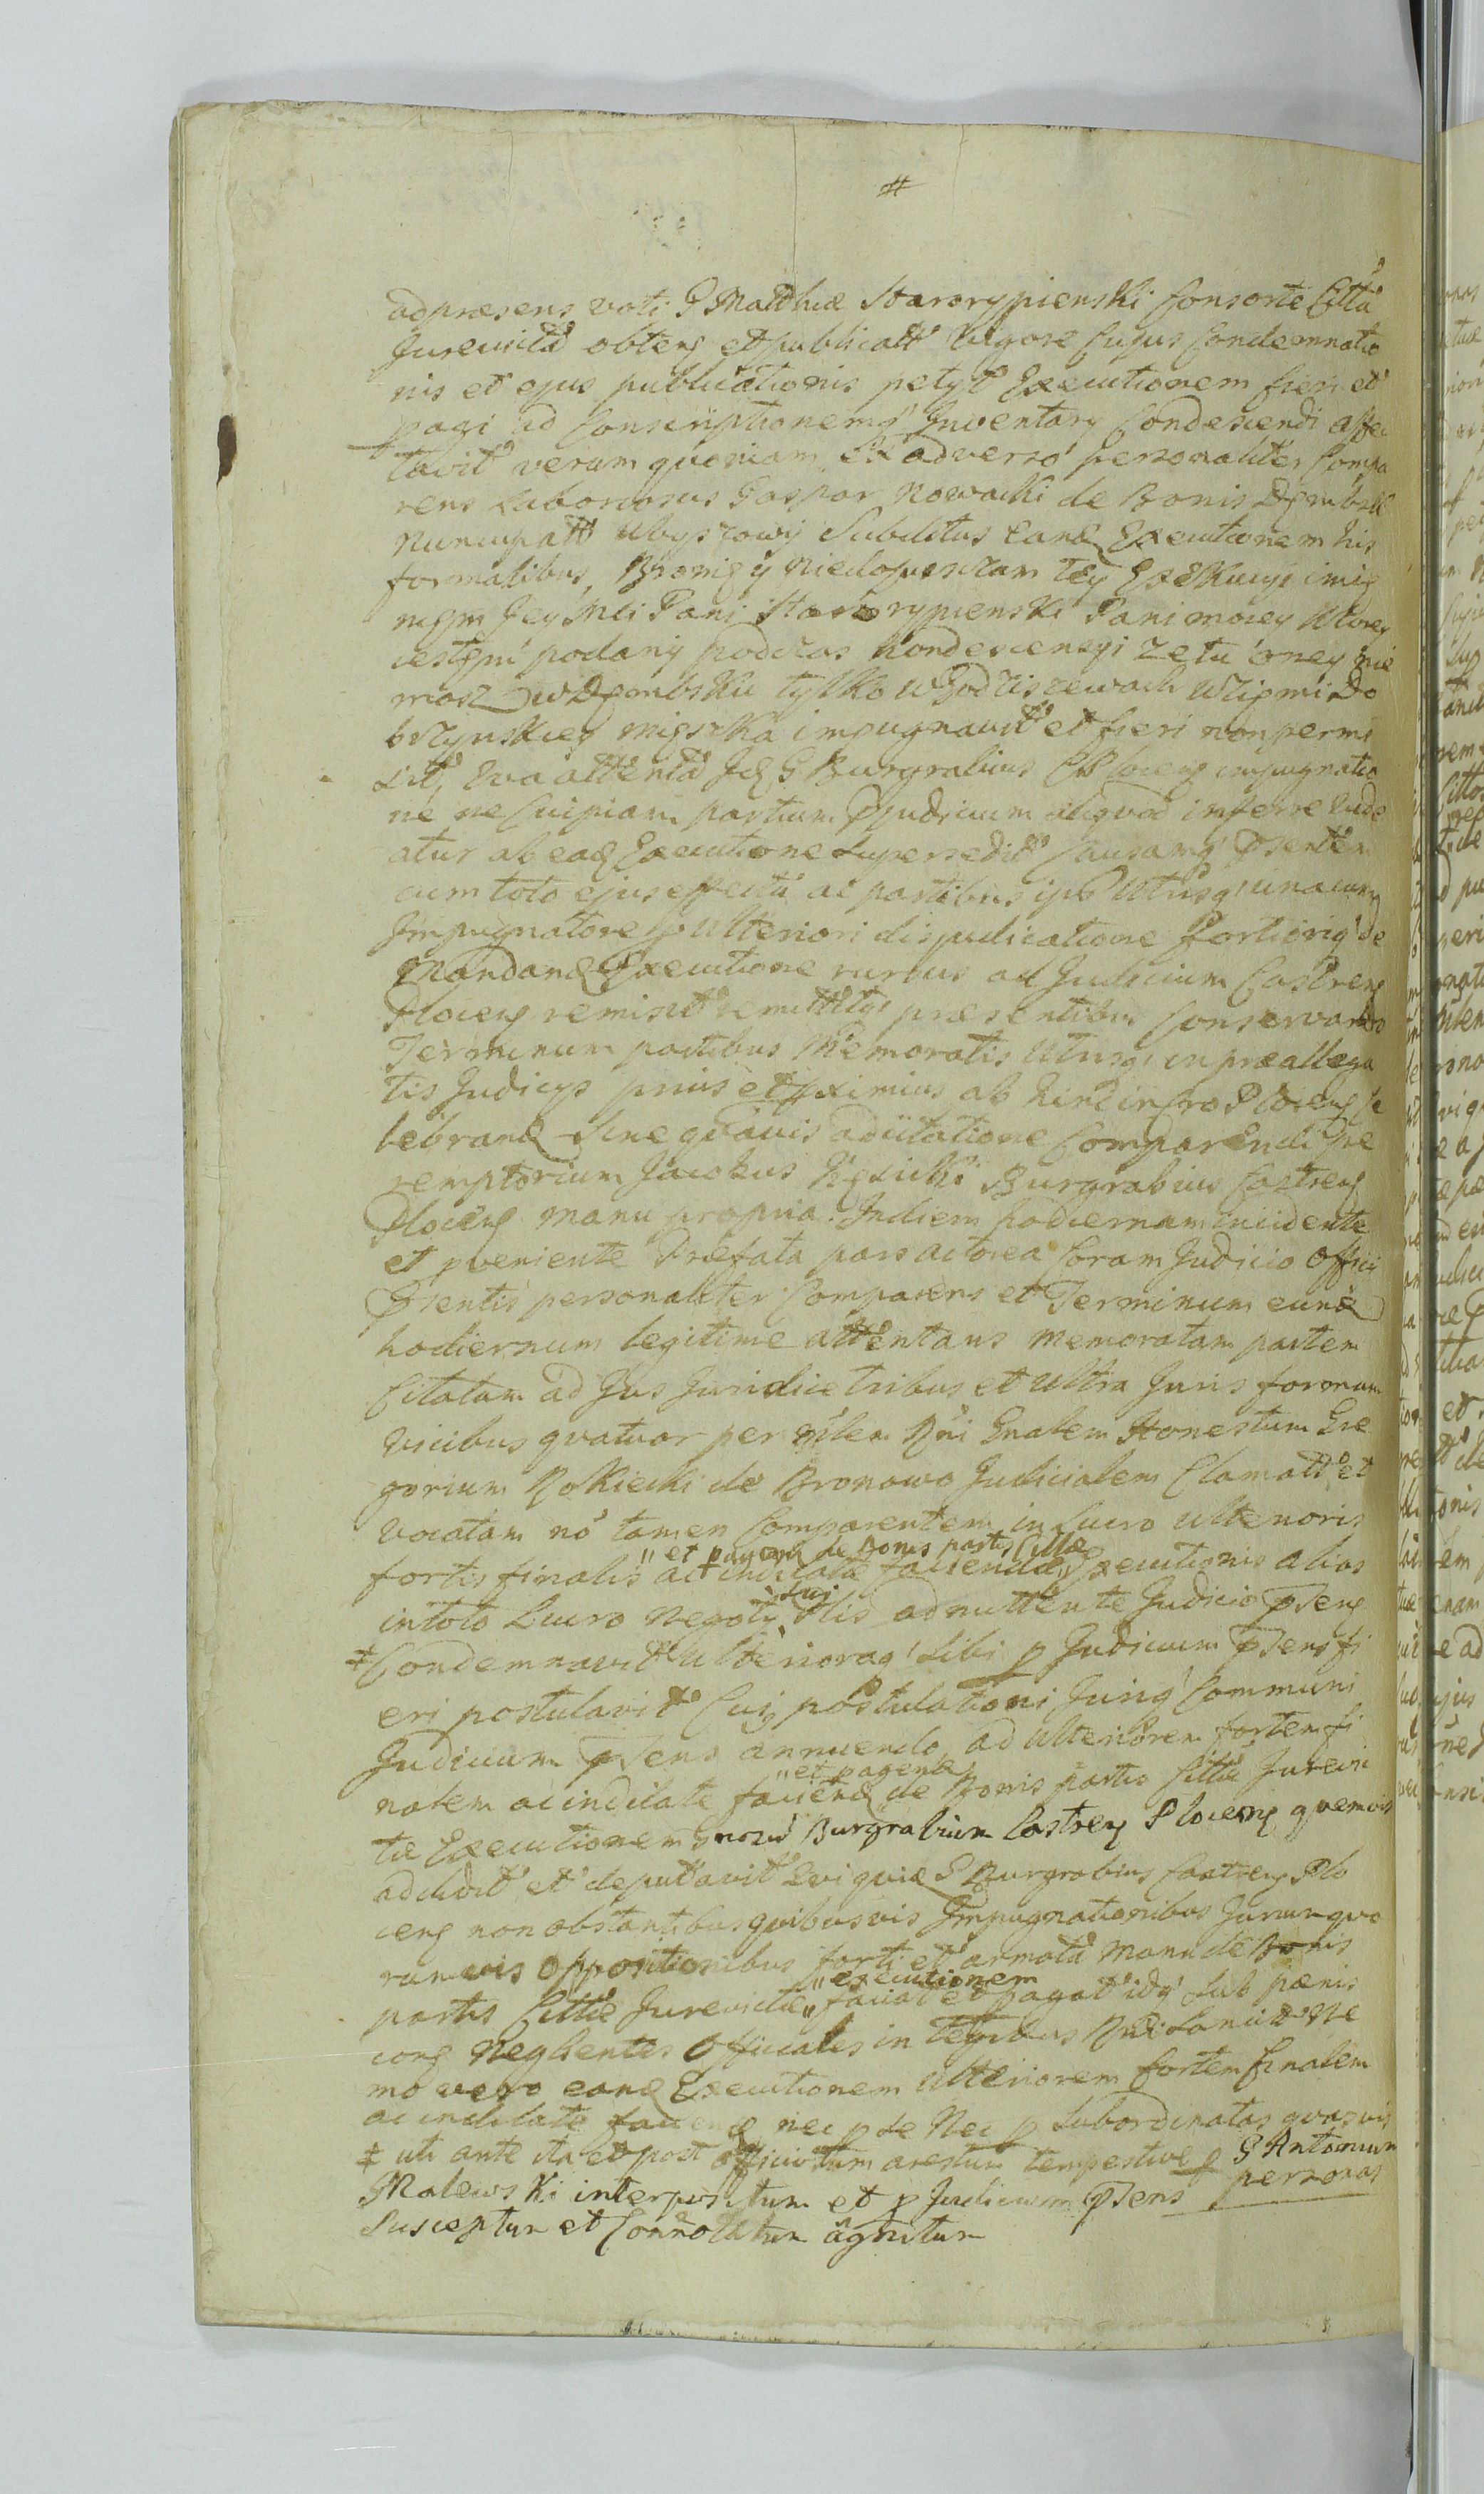 #
ad præsens voti G Matthiæ Starorypienski Consorte Citta
Jurevicta obtens et publicatt Vigore Cujus Condemnatio
nis et ejus publicationis petyt Executionem fieri et
pagi ad Conscriptionemq Inventary Condescendi affec
tavit verum quoniam ex adverso personaliter Compa
rens Laboriosus Gaspar Nowacki de Bonis Dembsk
nuncupatt Ubyszowy Subditus eand Executionem his
formalibus, Bronię y niedopuszczam tey Exekucyi imię
niem Jey Mci Pani Starorypienski Pani moiey Ktorey
iestęm podany podczas Kondescensyi ze tu oney nie
masz w Dęmbsku tylko w Godziszewach w Ziemi Do
brzynskiey mięszka impugnavit et fieri non permi
sit, Qva attenta Id G Burgrabius C Plocens impugnatio
ne ne Cuipiam partium Pjudicium aliquod inferre vide
atur ab ead Executione Supersedit Causamq Psentem
cum toto ejus effectu ac partibus ips Utrusq unacum
Impugnatore p Ulteriori dispudicatione fortioriq de
Mandand Executione rursus ad Judicium Castrens
Plocens remisit remittitq præsentibus Conservando
Terminum partibus Memoratis Utrusq in præallega
tis Judicys prius et pximius ab hinc in Cro Plocens ce
lebrand Sine quavis adcitatione Comparendi Pe
remptorium Jacobus Kęsicki Burgrabius Castrens
Plocens manu propria. In diem hodiernam incidente
et pveniente Præfata pars actorea Coram Judicio Offici
Psentis personaliter Comparens et Terminum eund
hodiernum legitime attentans memoratam partem
Citatam ad Jus Juridice tribus et Ultra Juris formam
vicibus quatuor per Mlem Rni Gnalem Honestum Gre
gorium Rokicki de Bronowo Judicialem Clamatt et
vocatam no tamen Comparentem in Lucro Ulterioris
" et pagend de Bonis partis Cittæ
fortis finalis ac indilate faciendæ " Executionis alias
Sui
in toto Lucro Negoty Illis admittente Judicio Psens
‡ Condemnavit Ulterioraq Sibi p Judicium Psens fi
eri postulavit Cujq postulationi Juriq Communi
Judicium Psens annuendo, ad Ulteriorem fortem fi
" et pagend
nalem ac indilate faciend " de Bonis partis Cittæ Jurevic
tæ Executionem Gnosu Burgrabium Castrens Plocens quemvis
addidit et deputavit Qui quid G Burgrabius Castrens Plo
cens non obstantibus quibusvis Impugnationibus Jurium quo
rumvis oppositionibus forti et armata manu de Bonis
" executionem
partis Cittæ Jurevictæ " faciat et pagat idq Sub pænis
cong Neglientes Officiales in Legibus Rni Sancitt Ne
mo vero eand Executionem Ulteriorem fortem finalem
ac indilate faciend nec p se Nec p Subordinatas quasvis
personas
‡ uti ante ita et post officiosum arestum tempestive p G Antonium
Malewski interpositum et p Judicium Psens
Susceptum et Connotatum agnitum